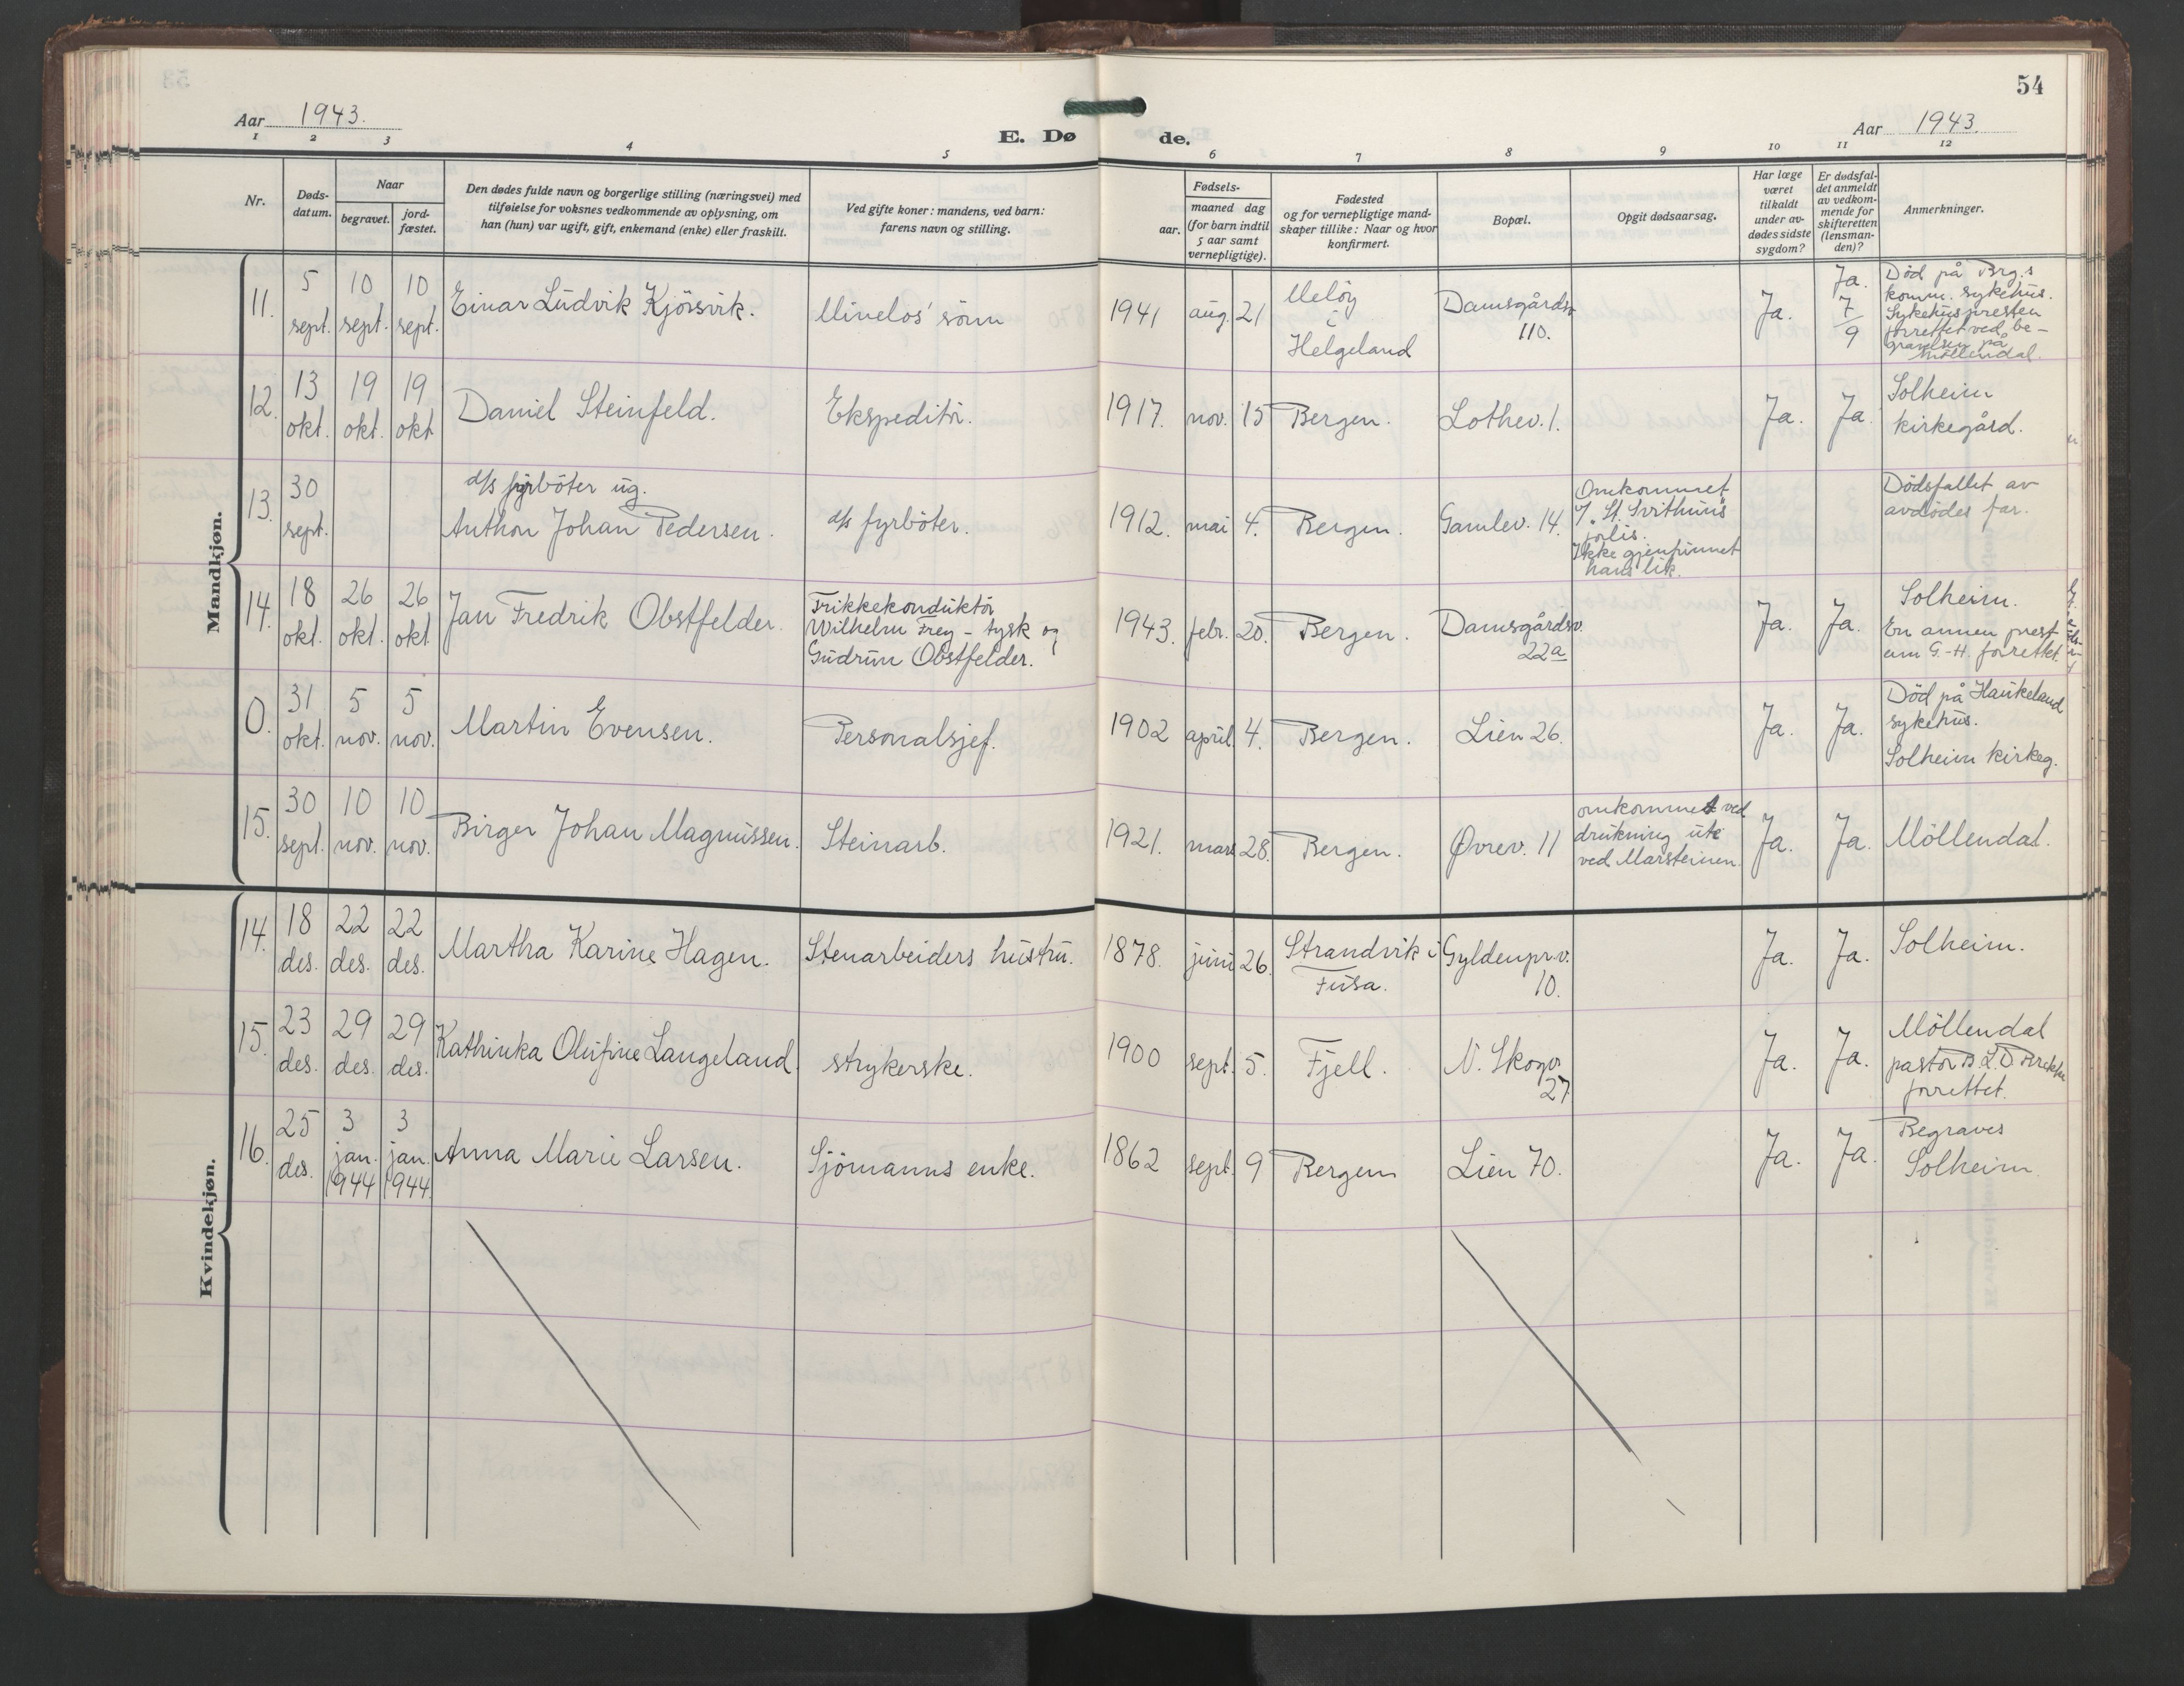 54
Aar 1943.
E. Dø
de.
Aar 1943.
1 2 3 4 5 6 7 8 9 10 11 12
Nr.
Døds-
datum.
Naar
begravet.
jord-
fæstet.
Den dødes fulde navn og borgerlige stilling (næringsvei) med
tilføielse for voksnes vedkommende av oplysning, om
han (hun) var ugift, gift, enkemand (enke) eller fraskilt.
Ved gifte koner: mandens, ved barn:
farens navn og stilling.
Fødsels-
aar.
maaned dag
(for barn indtil
5 aar samt
vernepligtige).
Fødested
og for vernepligtige mand-
skaper tillike: Naar og hvor
konfirmert.
Bopæl.
Opgit dødsaarsag.
Har læge
været
tilkaldt
under av-
dødes sidste
sygdom?
Er dødsfal-
det anmeldt
av vedkom-
mende for
skifteretten
(lensman-
den)?
Anmerkninger.
Mandkjøn.
11.
5
sept.
10
sept.
10
sept.
Einar Ludvik Kjörsvik.
sönn
1941
aug. 21
Melöy
i
Helgeland
Damsgårdsv.
110.
Ja.
Ja.
7
9
Död på Brg.s
komm. sykehus.
Sykehuspresten
forrettet ved be-
gravelsen på
Möllendal.
12.
13
okt.
19
okt.
19
okt
Daniel Steinfeld.
Ekspeditör.
1917.
nov. 15
Bergen.
Lothev. 1.
Ja.
Ja.
Solheim
kirkegård.
13.
30
sept.
d/s fyrböter ug.
Anthon Johan Pedersen.
d/s fyrböter.
1912.
mai 4.
Bergen.
Gamlev. 14.
Omkommet
"St. Svithuns"
forlis.
Ikke gjenfunnet
hans lik.
Dödsfallet av
avdödes far.
14.
18
okt.
26
okt.
26
okt
Jan Fredrik Obstfelder.
Trikkekonduktör
Wilhelm Frey - tysk og
Gudrun Obstfelder.
1943.
febr. 20.
Bergen.
Damsgårdsv.
22a
Ja.
Ja.
Solheim.
En annen prest
enn G.-H. forrettet.
0.
31
okt.
5
nov.
5
nov.
Martin Evensen.
Personalsjef.
1902
april 4.
Bergen.
Lien 26.
Ja.
Ja.
Död på Haukeland
sykehus.
Solheim kirkeg.
15.
30
sept.
10
nov.
10
nov.
Birger Johan Magnussen.
Steinarb.
1921.
mars 28.
Bergen.
Øvrev. 11
omkommet ved
drukning ute
ved Marsteinen.
Ja.
Ja.
Möllendal.
Kvindekjøn.
14.
18
des.
22
des.
22
des.
Martha Karine Hagen.
Stenarbeiders hustru.
1878.
juni 26.
Strandvik i
Fusa.
Gyldenpr.v.
10.
Ja.
Ja.
Solheim.
15.
23
des.
29
des.
29
des.
Kathinka Olufine Langeland.
strykerske.
1900
sept. 5.
Fjell.
N. Skogv.
27
Ja.
Ja.
Möllendal
pastor
forrettet.
16.
25
des.
3
jan.
1944
3
jan.
1944.
Anna Marie Larsen.
Sjömanns enke.
1862
sept. 9
Bergen
Lien 70.
Ja.
Ja.
Begraves
Solheim